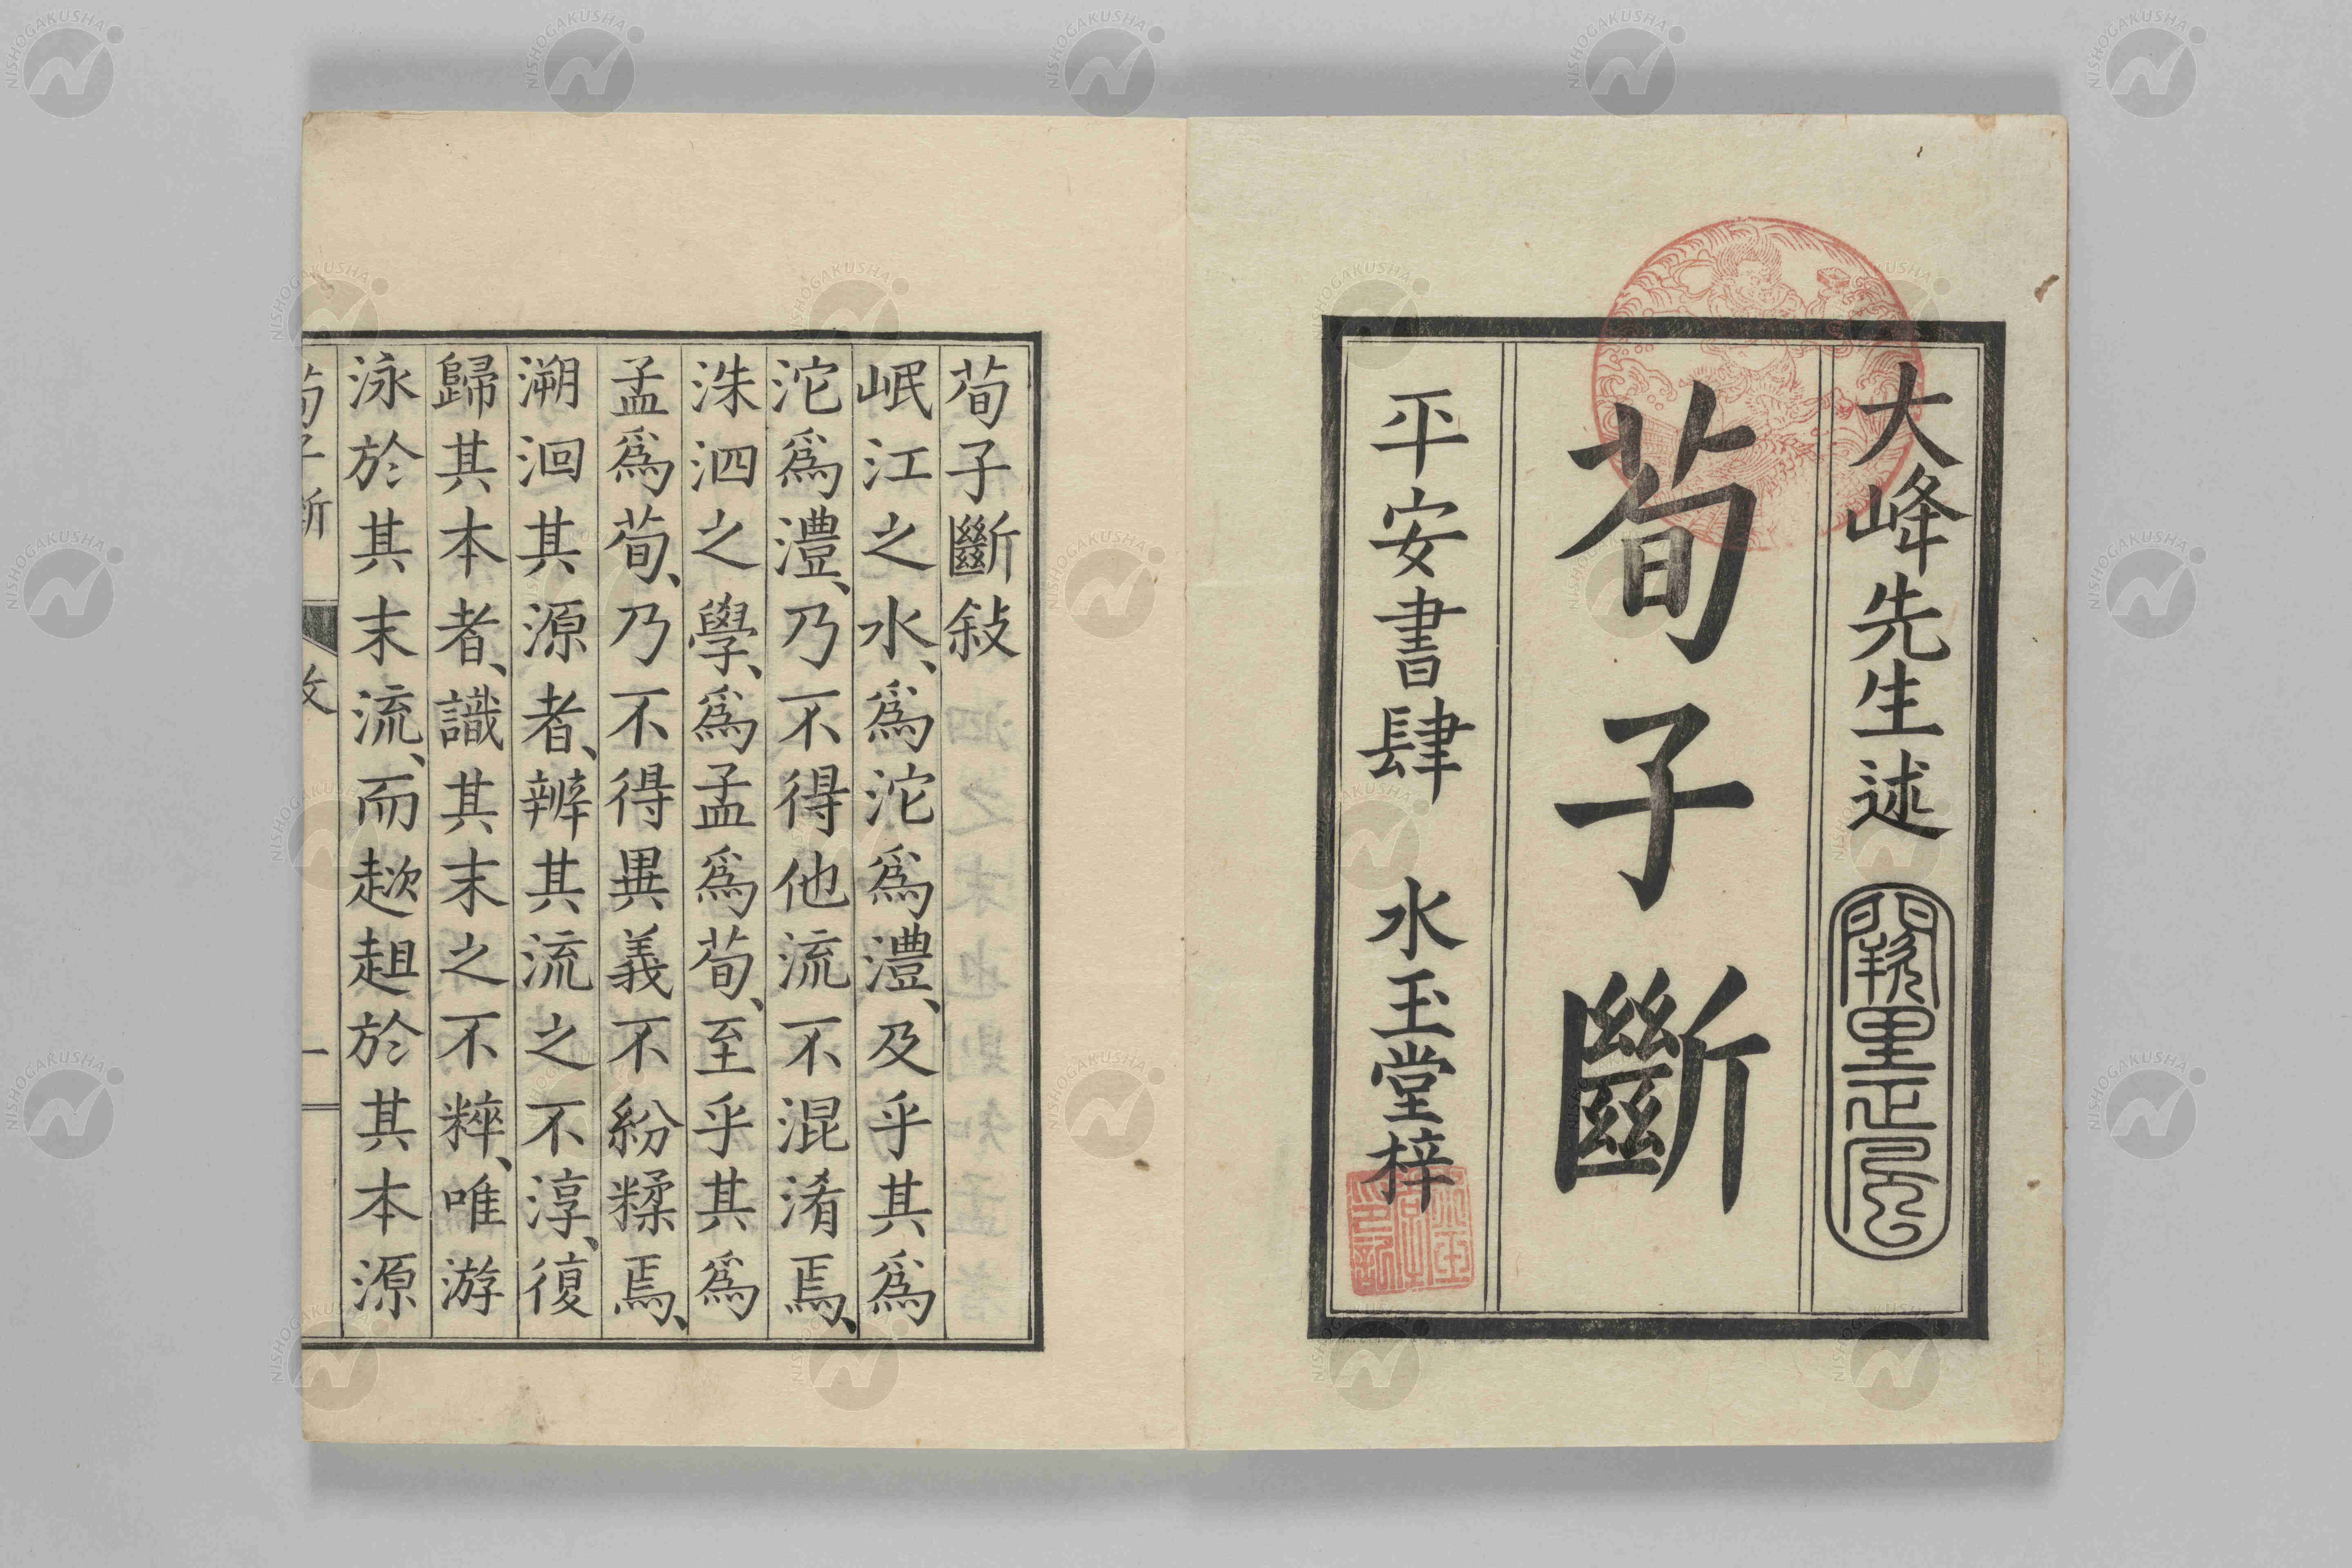 大峰先生述
荀子斷
平安書肆 水玉堂梓
荀子斷敍
岷江之水、爲沱爲澧、及乎其爲
沱爲澧、乃不得他流不混淆焉、
洙泗之學、爲孟爲荀、至乎其爲
孟爲荀、乃不得異義不紛糅焉、
溯洄其源者、辨其流之不淳、復
歸其本者、識其末之不粹、唯游
泳於其末流、而趑趄於其本源
NISHOGAKUSHA